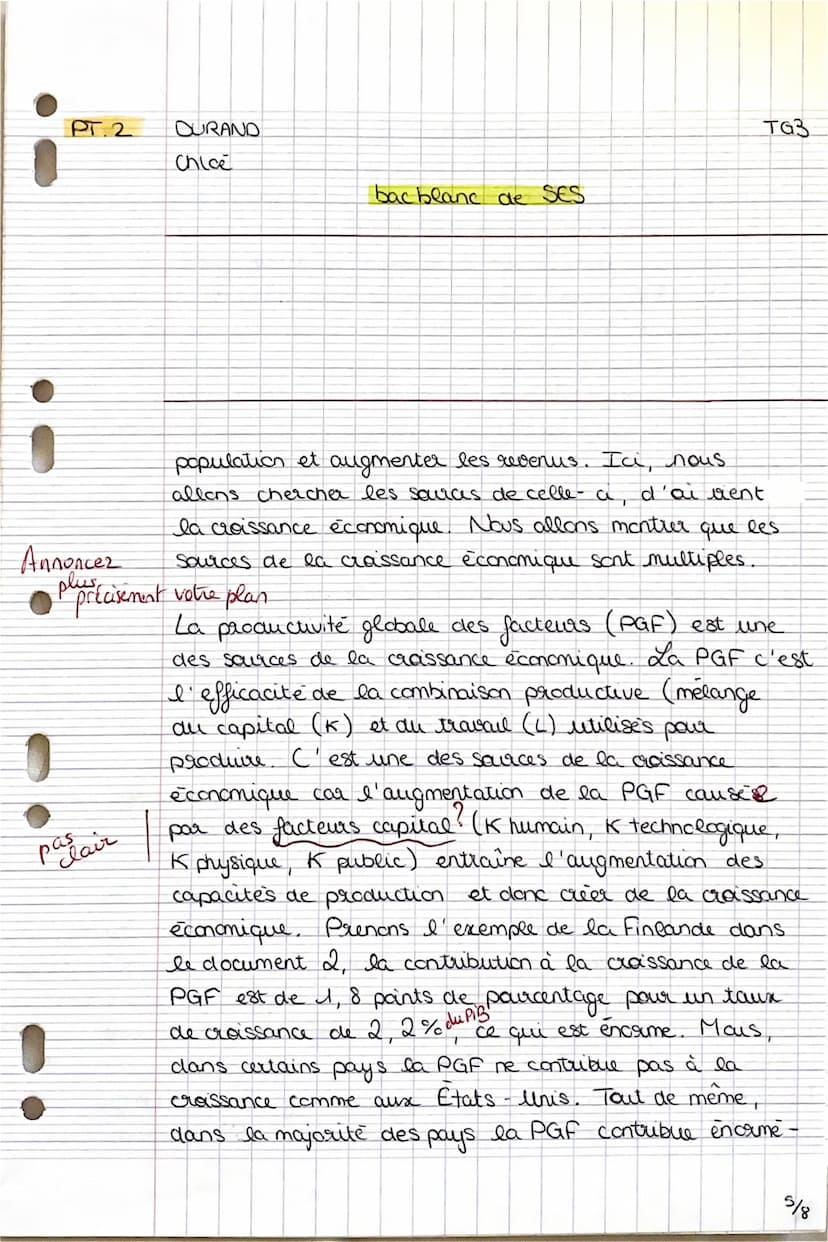 PT.2 DURAND TG3
Chloé
bac blanc de SES
population et augmenter les revenus. Ici, nous
allons chercher les sources de celle-ci, d'où vient
la croissance économique. Nous allons montrer que les
sources de la croissance économique sont multiples.
Annoncez
plus
précisément votre plan
La productivité globale des facteurs (PGF) est une
des sources de la croissance économique. La PGF c'est
l'efficacité de la combinaison productive (mélange
du capital (K) et du travail (L) utilisés pour
produire. C'est une des sources de la croissance
économique car l'augmentation de la PGF causée
par des facteurs capital ? (K humain, K technologique,
pas
clair
K physique, K public) entraîne l'augmentation des
capacités de production et donc créer de la croissance
économique. Prenons l'exemple de la Finlande dans
le document 2, la contribution à la croissance de la
PGF est de 1,8 points de pourcentage pour un taux
de croissance de 2,2% du PIB, ce qui est énorme. Mais,
dans certains pays la PGF ne contribue pas à la
croissance comme aux États-Unis. Tout de même,
dans la majorité des pays la PGF contribue énormé-
5/8